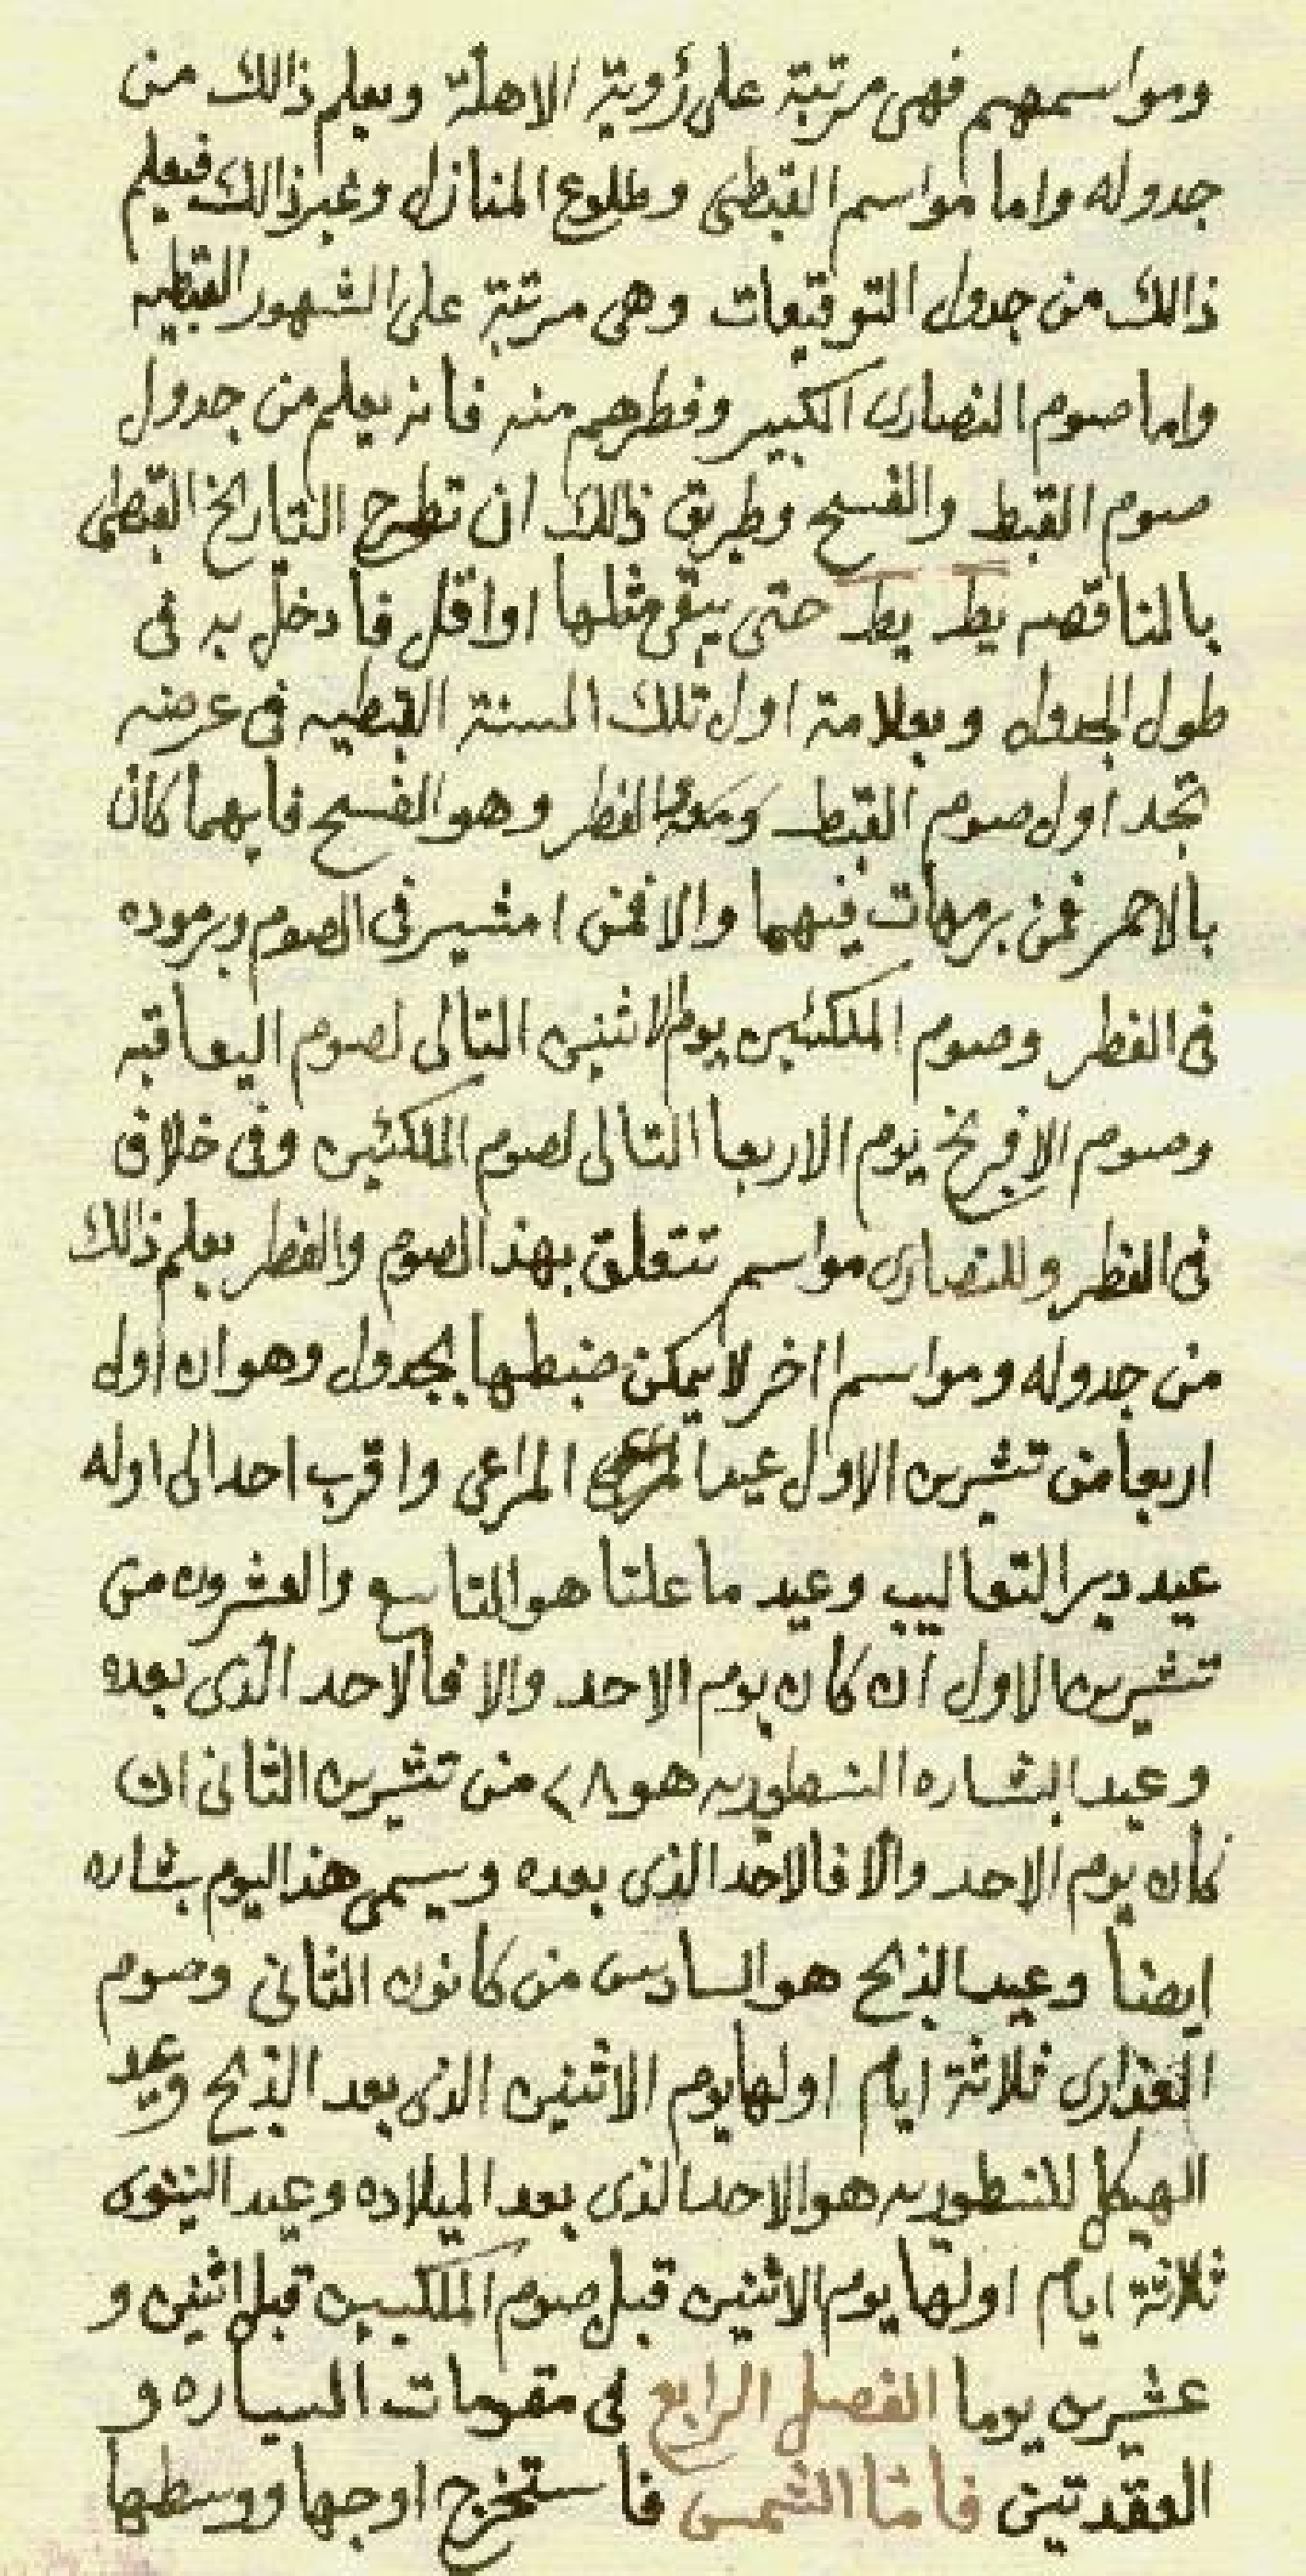 ومواسمهم فهى مرتبة على رؤية الاهلة ويعلم ذالك من
جدوله واما مواسم القبطى وطلوع المنازل وغير ذالك فيعلم
ذالك من جدول التوقيعات وهى مرتبة على الشهور القبطيه
واما صوم النصارى الكبير وفطرهم منه فانه يعلم من جدول
صوم القبط والفسح وطريق ذالك ان تطرح التاريخ القبطى
بالمناقصه يط يط حتى يبقى مثلها او اقل فادخل به فى
طول الجدول وبعلامة اول تلك السنة القبطيه فى عرضه
تجد اول صوم القبط ومعه الفطر وهو الفسح فايهما كان
بالاحمر فمن برمهات فيهما والا فمن امشير فى الصوم وبرموده
فى الفطر وصوم الملكئين يوم الاثنين التالى لصوم اليعاقبه
وصوم الافرنج يوم الاربعا التالى لصوم الملكئين وفى خلاف
فى الفطر وللنصارى مواسم تتعلق بهذا الصوم والفطر يعلم ذالك
من جدوله ومواسم اخر لا يمكن ضبطها بجدول وهو ان اول
اربعا من تشرين الاول عيد المراعى واقرب احد الى اوله
عيد دير التعاليب وعيد ماعلتا هو التاسع والعشرون من
تشرين الاول ان كان يوم الاحد والا فالاحد الذى بعده
وعيد البشاره النسطوريه هو ٢٨ من تشرين الثانى ان
كان يوم الاحد والا فالاحد الذى بعده ويسمى هذا اليوم بشاره
ايضا وعيد الذبح هو السادس من كانون الثانى وصوم
العذارى ثلاثة ايام اولها يوم الاثنين الذى بعد الذبح وعيد
الهيكل للنسطوريه هو الاحد الذى بعد الميلاده وعيد النينوى
ثلاثة ايام اولها يوم الاثنين قبل صوم الملكيين قبل اثنين و
عشرين يوما الفصل الرابع فى مقومات السياره و
العقدتين فاما الشمس فاستخرج اوجها ووسطها